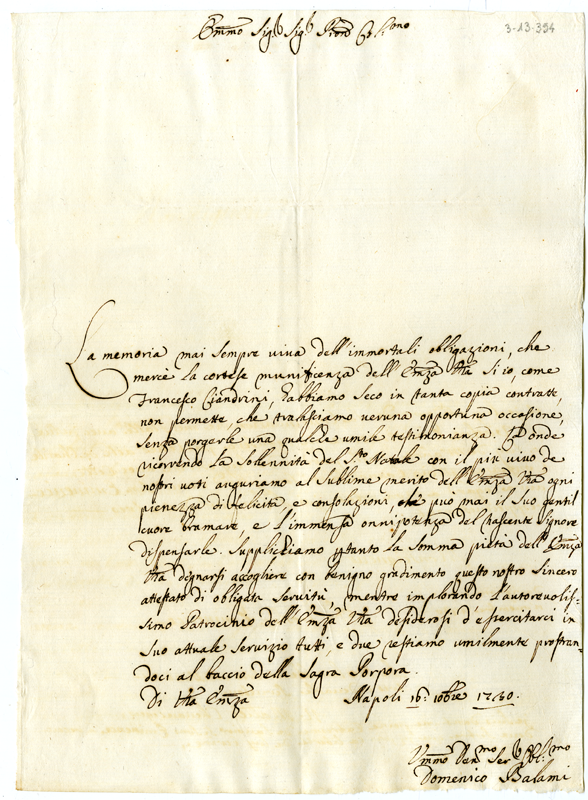 3-13-394
Emmo Sigr Sigr Prone Colmo
La memoria mai sempre viva dell'immortali obligazioni, che
mercè la cortese munificenza dell'Emza Vra si io, come
Francesco Ciandrini, habbiamo seco in tanta copia contratte,
non permette, che tralasciamo veruna opportuna occasione,
senza porgerle una qualche umile testimonianza. Ond'è
ricorrendo la sollennità del Sto Natale con il più vivo de
nostri voti auguriamo al sublime merito dell'Emza Vra ogni
pienezza di felicità, e consolazioni che può mai il suo gentil
cuore bramare, e l'immensa onnipotenza del nascente Signore
dispensarle. Supplichiamo pertanto la somma pietà dell'Emza
Vra degnarsi accogliere con benigno gradimento questo nostro sincero
attestato di obligata servitù, mentre implorando l'autorevolis-
simo Patrocinio dell'Emza Vra desiderosi d'esercitarci in
suo attuale servizio tutti, e due restiamo umilmente prostran-
doci al baccio della Sagra Porpora.
Di Vra Emza Napoli 16: Xbre 1740.
Ummo Devmo Serv Obbmo
Domenico Balami